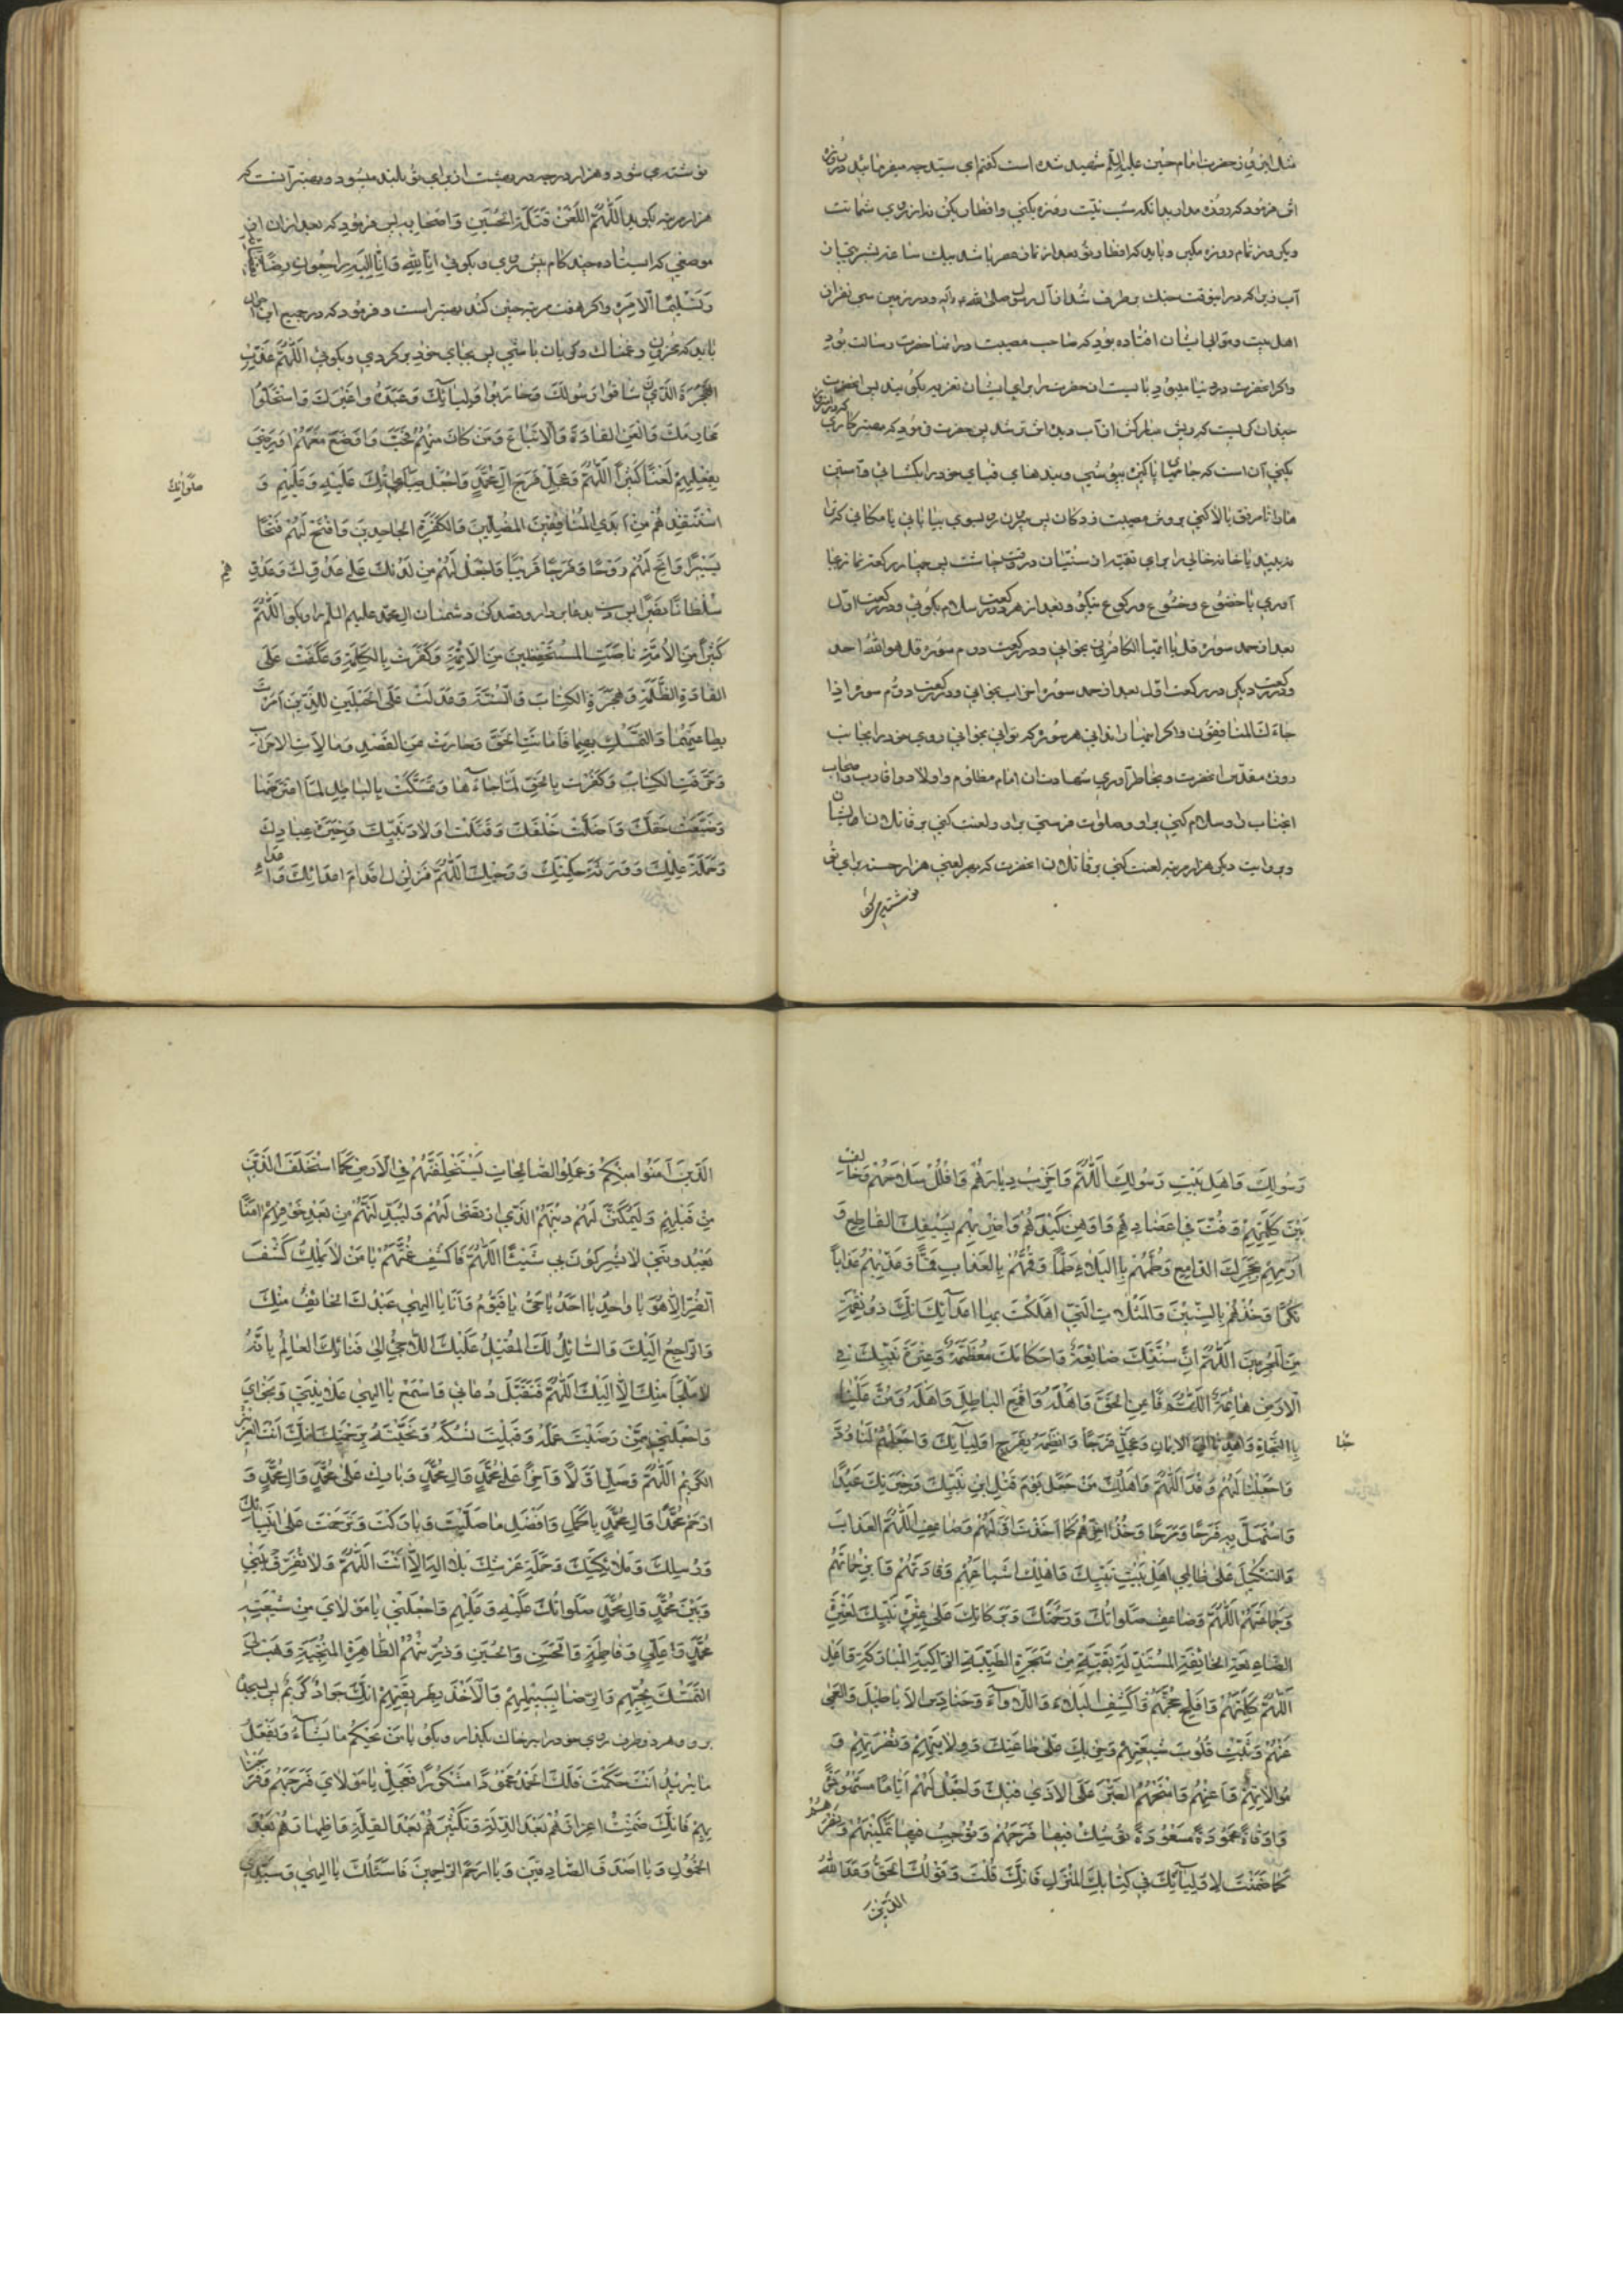 مثل این روز حضرت امام حسین علیه السلم شهید شده است گفتم ای سید چه میفرمائید در روزه
او فرمود که روزه بدار بدانکه شب نیت روزه بکنی وافطار بکن نه از روی شماتت
ویک روز تمام روزه مگیر وباید که افطار تو بعد از نماز عصر باشد بیک ساعت بشربتی از آن
آب زیرا که در اینوقت جنك برطرف شد از آل رسول صلی الله علیه وآله ودر زمین سی نفر از
اهل بیت وموالی ایشان افتاده بود که صاحب مصیبت در آنها حضرت رسالت بود
واگر آنحضرت در دنیا میبود بایست آن حضرت را برای ایشان تعزیه بگویند پس آنحضرت
چندان گریست که ریش مبارکش از آب دیده اش تر شد پس حضرت فرمود که بهتر کاری که در این روز
بکنی آن است که جامهای پاکیزه بپوشی وبندهای قبای خود را بگشائی وآستین
ها را تا مرفق بالا کنی بروش مصیبت زدگان پس بیرون روی بسوی بیابانی یا مکانی که ترا
نه بیند یا خانه خالی را برای تقیه از سنیان در وقت چاشت پس چهار رکعت نماز بجا
آوری با خضوع وخشوع ورکوع نیکو وبعد از هر دو رکعت سلام بگوئی ودر رکعت اول
بعد از حمد سوره قل یا ایها الکافرون بخوانی ودر رکعت دوم سوره قل هو الله احد
ودو رکعت دیگر در رکعت اول بعد از حمد سوره احزاب بخوانی ودر رکعت دوم سوره اذا
جاءك المنافقون واگر اینها را ندانی هر سوره که توانی بخوانی وروی خود را بجانب
روضه مقدس آنحضرت وبخاطر آوری شهادت آن امام مظلوم واولاد واقارب واصحاب
آنجناب را وسلام کنی براو وصلوات فرستی براو ولعنت کنی بر قاتلان ایشان
وبروایت دیگر هزار مرتبه لعنت کنی بر قاتلان آنحضرت که بهر لعنی هزار حسنه برای تو
نوشته می شود
نوشته می شود وهزار درجه در بهشت از برای تو بلند میشود وبهتر آنست که
هزار مرتبه بگوید اللهم العن قتلة الحسین واصحابه پس فرمود که بعد از آن از
موضعی که ایستاده چند کام پیش روی وبگوئی انا لله وانا الیه راجعون رضا بقضائه
وتسلیما لامره واگر هفت مرتبه چنین کند بهتر است وفرمود که در جمیع این احوال
باید که محزون وغمناك وگریان باشی پس بجای خود برگردی وبگوئی اللهم عذب
الفجرة الذین شاقوا رسولك وحاربوا اولیائك وعبدوا غیرك واستحلوا
محارمك والعن القادة والاتباع ومن کان منهم فخب واوضع معهم او رضی
بفعلهم لعنا کثیرا اللهم وعجل فرج ال محمد واجعل صلواتك علیه وعلیهم و
صلواتك
استنقذهم من ایدی المنافقین المضلین والکفرة الجاحدین وافتح لهم فتحا
یسیرا واتح لهم روحا وفرجا قریبا واجعل لهم من لدنك علی عدوك وعدوهم
سلطانا نصیرا پس دست بدعا بردار وقصد کن دشمنان ال محمد علیهم السلم را وبگو اللهم ان
کثیرا من الامة ناصبت المستحفظین من الائمة وکفرت بالکلمة وعکفت علی
القادة الظلمة وهجرت الکتاب والسنة وعدلت عن الحبلین الذین امرت
بطاعتهما والتمسك بهما فاماتت الحق وحارت عن القصد ومالات الاحزاب
وحرفت الکتاب وکفرت بالحق لما جاءها وتمسکت بالباطل لما اعترضها
وضیعت حقك واضلت خلقك وقتلت اولاد نبیك وخیرة عبادك
وحملة علمك وورثة حکمتك ووحیك اللهم فزلزل اقدام اعدائك واعداء
رسولك واهل بیت رسولك اللهم واخرب دیارهم وافلل سلاحهم وخالف
بین کلمتهم وفت فی اعضادهم واوهن کیدهم واضربهم بسیفك القاطع و
ارمهم بحجرك الدامغ وطمهم بالبلاء طما وقمهم بالعذاب قما وعذبهم عذابا
نکرا وخذهم بالسنین والمثلات التی اهلکت بها اعدائك انك ذو نقمة
من المجرمین اللهم ان سنتك ضائعة واحکامك معطلة وعترة نبیك فی
الارض هائمة اللهم فاعن الحق واهله واقمع الباطل واهله ومن علینا
بالنجاة واهدنا الی الایمان وعجل فرجنا وانظمه بفرج اولیائك واجعلهم لنا ودا
واجعلنا لهم وفدا اللهم واهلك من جعل یوم قتل ابن نبیك وخیرتك عیدا
واستهل به فرحا ومرحا وخذ اخرهم کما اخذت اولهم وضاعف اللهم العذاب
والتنکیل علی ظالمی اهل بیت نبیك واهلك اشیاعهم وقادتهم وابر حماتهم
وجماعتهم اللهم وضاعف صلواتك ورحمتك وبرکاتك علی عترة نبیك العترة
الضائعة الخائفة المستذلة بقیة من شجرة الطیبة الزاکیة المبارکة واعل
اللهم کلمتهم وافلج حجتهم واکشف البلاء واللاواء وحنادس الاباطیل والعمی
عنهم وثبت قلوب شیعتهم وحزبك علی طاعتك وولایتهم ونصرتهم و
موالاتهم واعنهم وامنحهم الصبر علی الاذی فیك واجعل لهم ایاما مشهودة
واوقاتا محمودة مسعودة توشك فیها فرجهم وتوجب فیها تمکینهم ونصرهم
کما ضمنت لاولیائك فی کتابك المنزل فانك قلت وقولك الحق وعد الله
الذین
الذین آمنوا منکم وعملوا الصالحات لیستخلفنهم فی الارض کما استخلف الذین
من قبلهم ولیمکنن لهم دینهم الذی ارتضی لهم ولیبدلنهم من بعد خوفهم امنا
یعبدوننی لا یشرکون بی شیئا اللهم فاکشف غمتهم یا من لا یملك کشف
الضر الا هو یا واحد یا احد یا حی یا قیوم وانا یا الهی عبدك الخائف منك
والراجع الیك والسائل لك المقبل علیك اللاجی الی فنائك العالم بانه
لا ملجا منك الا الیك اللهم فتقبل دعائی واسمع یا الهی علانیتی ونجوای
واجعلنی ممن رضیت عمله وقبلت نسکه ونجیته برحمتك انك انت العزیز
الکریم اللهم وصل اولا وآخرا علی محمد وال محمد وبارك علی محمد وال محمد و
ارحم محمدا وال محمد باکمل وافضل ما صلیت وبارکت وترحمت علی انبیائك
ورسلك وملائکتك وحملة عرشك بلا اله الا انت اللهم ولا تفرق بینی
وبین محمد وال محمد صلواتك علیه وعلیهم واجعلنی یا مولای من شیعة
محمد وعلی وفاطمة والحسن والحسین وذریتهم الطاهرة المنتجبة وهب لی
التمسك بحبلهم والرضا بسبیلهم والاخذ بطریقتهم انك جواد کریم پس بسجده
برو وهر دو طرف روی خود را بر خاك بگذار وبگو یا من یحکم ما یشاء ویفعل
ما یرید انت حکمت فلك الحمد محمودا مشکورا فعجل یا مولای فرجهم وفرجنا
بهم فانك ضمنت اعزازهم بعد الذلة وتکثیرهم بعد القلة واظهارهم بعد
الخمول ویا اصدق الصادقین ویا ارحم الراحمین فاسئلك یا الهی وسیدی